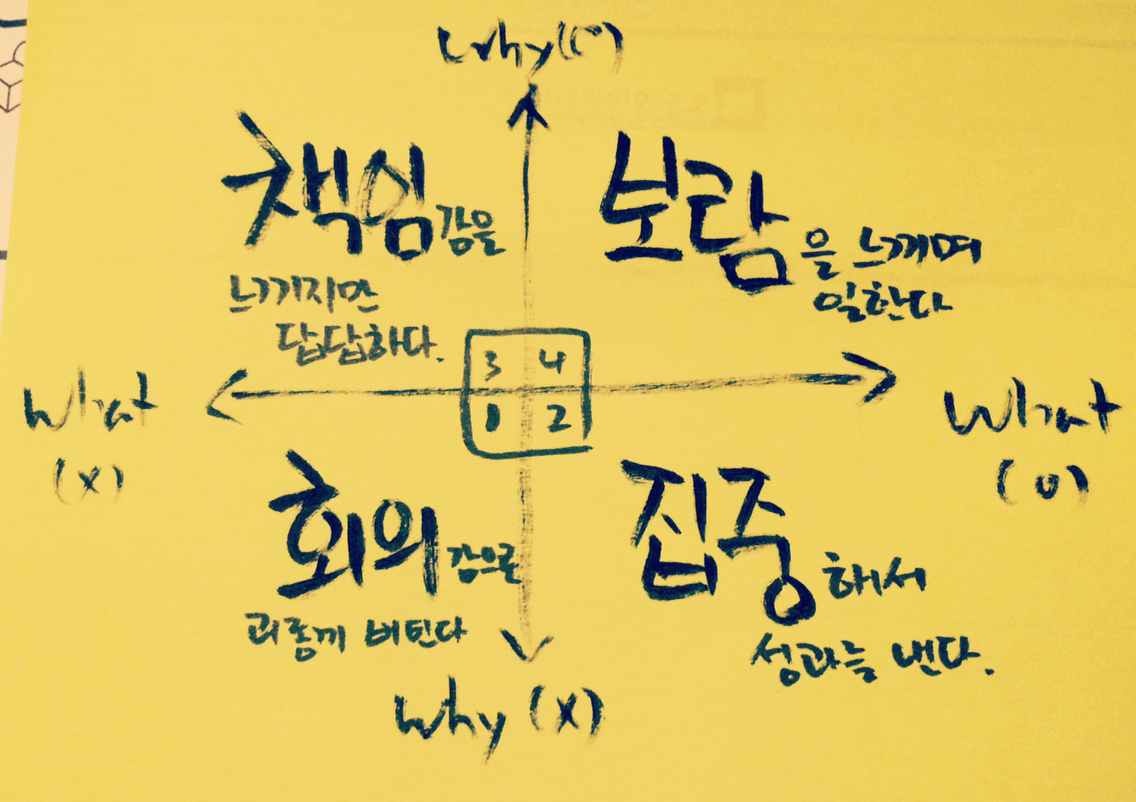 Why(O)
책임감을
느끼지만
답답하다.
보람을 느끼며
일한다
3 4
1 2
What
(X)
What
(O)
회의감으로
퇴종끼 버틴다
집중해서
성과를 낸다.
Why (X)